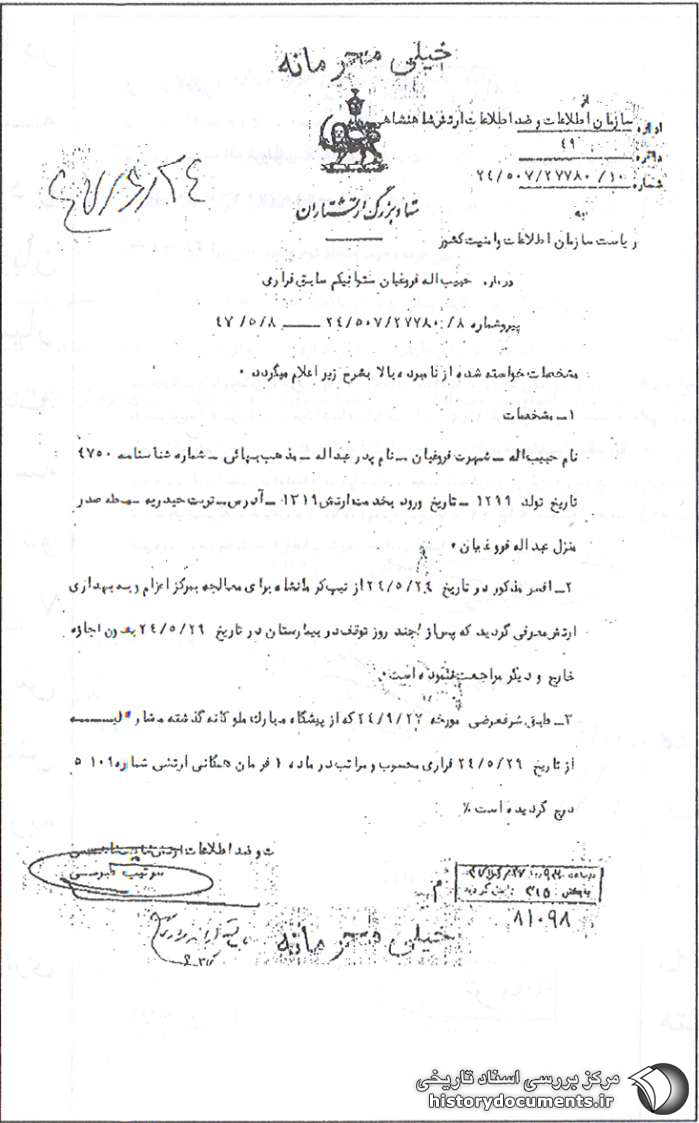 خیلی محرمانه
از
اداره سازمان اطلاعات و ضد اطلاعات ارتش شاهنشاهی
دائره ۴۹
شماره ۲۴/۵۰۷/۲۷۷۸۰/۱۰
۴۷/۶/۲۴
ستاد بزرگ ارتشتاران
به
ریاست سازمان اطلاعات و امنیت کشور
درباره حبیب اله فروغیان ستوانیکم سابق فراری
پیرو شماره ۲۴/۵۰۷/۲۷۷۸۰/۸ ــ ۴۷/۵/۸
مشخصات خواسته شده از نامبرده بالا بشرح زیر اعلام میگردد ۰
۱ــ مشخصات
نام حبیب اله ــ شهرت فروغیان ــ نام پدر عبداله ــ مذهب بهائی ــ شماره شناسنامه ۴۷۵۰
تاریخ تولد ۱۲۹۹ ــ تاریخ ورود بخدمت ارتش ۱۳۱۹ ــ آدرس ــ تربت حیدریه ــ محله صدر
منزل عبداله فروغیان ۰
۲ــ افسر مذکور در تاریخ از تیپ کرمانشاه برای معالجه بمرکز اعزام و به بهداری
ارتش معرفی گردید که پس از چند روز توقف در بیمارستان در تاریخ ۲۴/۵/۲۹ بدون اجازه
خارج و دیگر مراجعت ننموده است ۰
۳ــ طبق شرفعرضی مورخه ۲۴/۹/۲۷ که از پیشگاه مبارک ملوکانه گذشته مشارالیه
از تاریخ ۲۴/۵/۲۹ فراری محسوب و مراتب در ماده ۱ فرمان همگانی ارتشی شماره ۵۱۰۹
درج گردیده است ٪
ت و ضد اطلاعات
سرتیپ
م
۸۱۰۹۸
خیلی محرمانه
مرکز بررسی اسناد تاریخی
historydocuments.ir